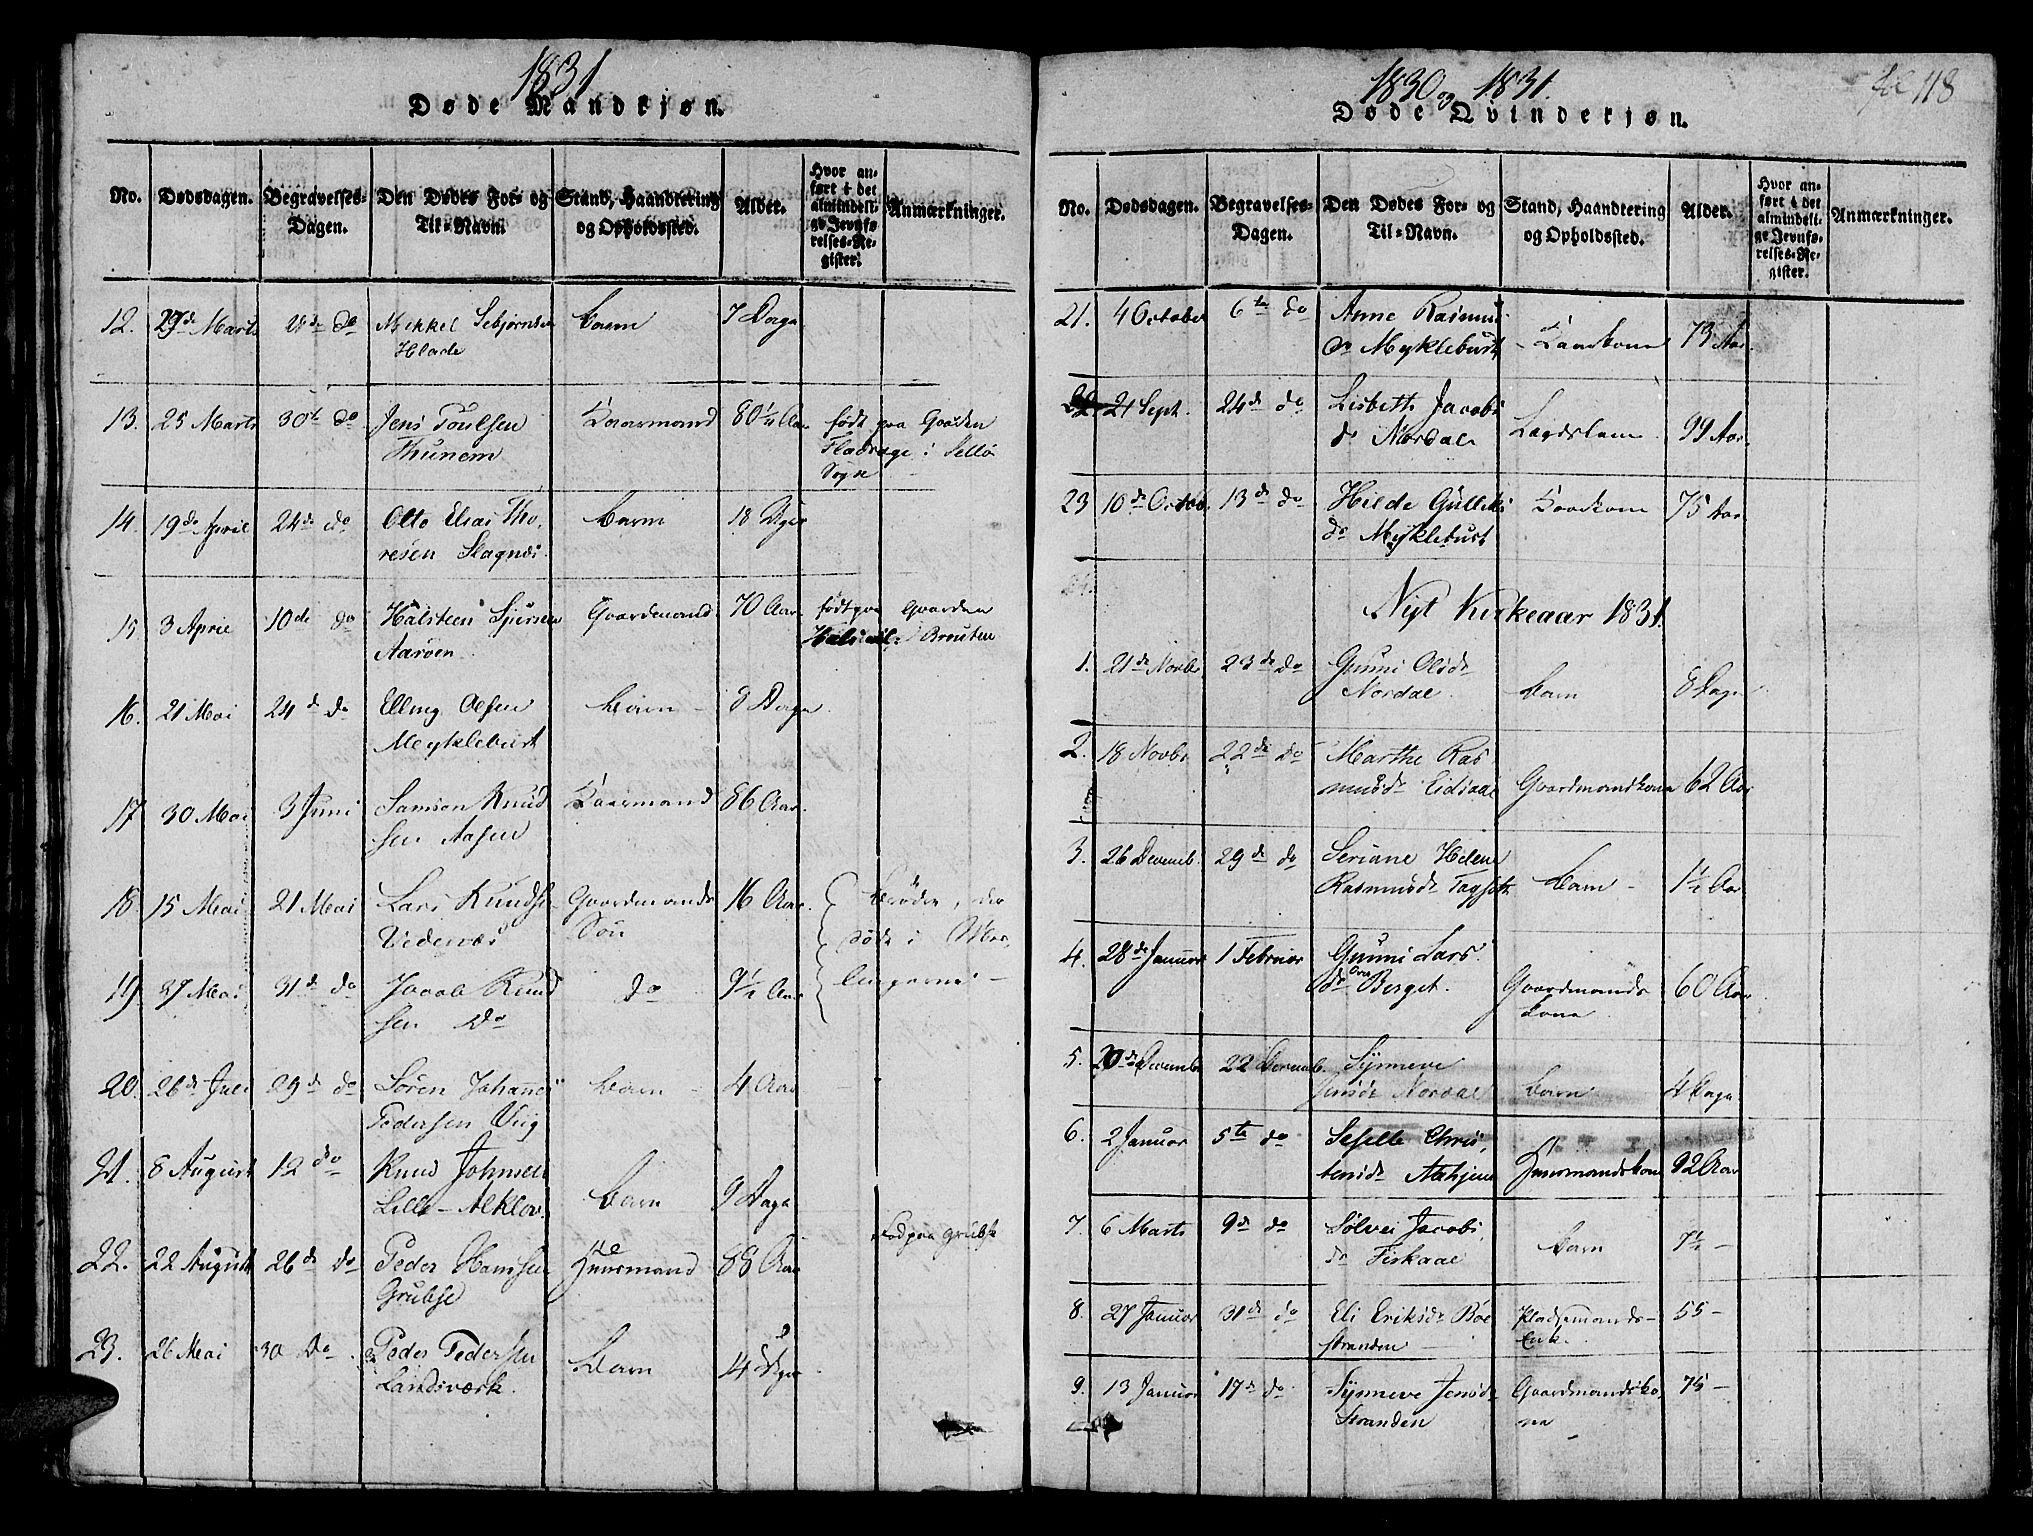 1831
Døde Mandkjøn.
No. Dødsdagen. Begravelses-Dagen. Den Dødes For- og Til-Navn. Stand, Haandtering og Opholdssted. Alder. Hvor anført i det almindelige Jevnførelses-Register. Anmærkninger.
12. 27de Marts do Mikkel Sebjørnsen Barn 7 Dage
Hlade
13. 25 Marts 30te do Jens Poulsen Kaarmand 80 1/4 Aar født paa Gaarden
Thunem i Sellø
Sogn
14. 19de April 24de do Otto Elias Tho- Barn 18 Dger
resen Slagnæs
15 3 April 10de do Halsteen Sjursen Gaardmand 70 Aar født paa Gaarden
Aarøen
16. 21 Mai 24de do Elling Olsen Barn 8 Dage
Myklebust
17 30 Mai 3 Juni Samson Knud Kaarmand 86 Aar
sen Aasen
18 15 Mai 21 Mai Lars Knudse Gaardmands 16 Aar Brødre, der
Vedenæs Søn døde i
19 27 Mai 31de do Jacob Knud do 9 1/2 Aar
sen do
20. 26de Juli 29de do Søren Johannes Barn 4 Aar
Pedersen Viig
21. 8 August 12 do Knud Johnsen
Lille-Alklov. Barn 9 Dage
Fød paa Grubse
22. 22 August 26de do Peder Hansen Huusmand 88 Aar
Grubse
23. 26 Mai 30 do Peder Pedersen Barn 14 Dger
Landsværk.
1830 og 1831.
fol 118
Døde Qvindekjøn.
No. Dødsdagen. Begravelses-Dagen. Den Dødes For- og Til-Navn. Stand, Haandtering og Opholdssted. Alder. Hvor anført i det almindelige Jevnførelses-Register. Anmærkninger.
21. 4 October 6te do Anne Rasmus
dr Myklebust Kaarkone 73 Aar
22. 21 Sept. 24de do Lisbeth Jacobs
dr Nordal Lægdslem 99 Aar
23 10de Octob. 13de do Hilde Gulliks Kaarkone 75 Aar
dr Myklebust
Nyt Kirkeaar 1831.
1. 21de Novbr 23de do Gunni Olsdr
Nordal. Barn 8 Dage
2. 18 Novbr 22de do Marthe Ras
musdr Eidsaae Gaardmandkone 62 Aar
3. 26 Decemb. 29de do Seriane Helene
Rasmusdr Barn 1 1/2 Aar
4. 28de Januar 1 Februar Gunni Lars
dr Berget. Gaardmands 60 Aar
Kone
5. 20de Decemb. 22 Decemb. Synneve
Jensdr Nordal Barn 4 Dage
6. 2 Januar 5te do Sefelle Chris-
tensdr Huusmandskone 92 Aar
7. 6 Marts 9de do Sølvei Jacobs
dr Fiskaae Barn 7 1/2 -
8. 27 Januar 31de do Eli Eriksdr Bøe Pladsemands- 55 -
stranden Enke.
9. 13 Januar 17de do Synneve Jensdr Gaardmandsko- 75 -
Stranden ne